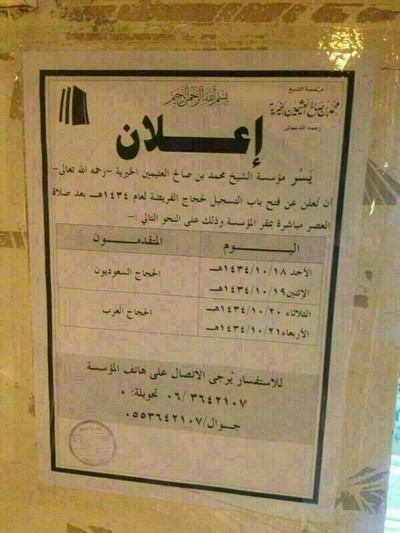 بسم الله الرحمن الرحيم
مؤسسة الشيخ
محمد بن صالح العثيمين الخيرية
رحمه الله تعالى
إعلان
يَسُر مؤسسة الشيخ محمد بن صالح العثيمين الخيرية -رحمه الله تعالى-
أن تُعلن عن فتح باب التسجيل لحجاج الفريضة لعام ١٤٣٤هـ بعد صلاة
العصر مباشرة بمقر المؤسسة وذلك على النحو التالي :-
اليــوم المتقدمــون
الأحد ١٤٣٤/١٠/١٨هـ
الإثنين ١٤٣٤/١٠/١٩هـ
الحجاج السعوديون
الثلاثاء ١٤٣٤/١٠/٢٠هـ
الأربعاء ١٤٣٤/١٠/٢١هـ
الحجاج العرب
للاستفسار يُرجى الاتصال على هاتف المؤسسة
٠٦/٣٦٤٢١٠٧ تحويلة: ٠
جــوال/٠٥٥٣٦٤٢١٠٧